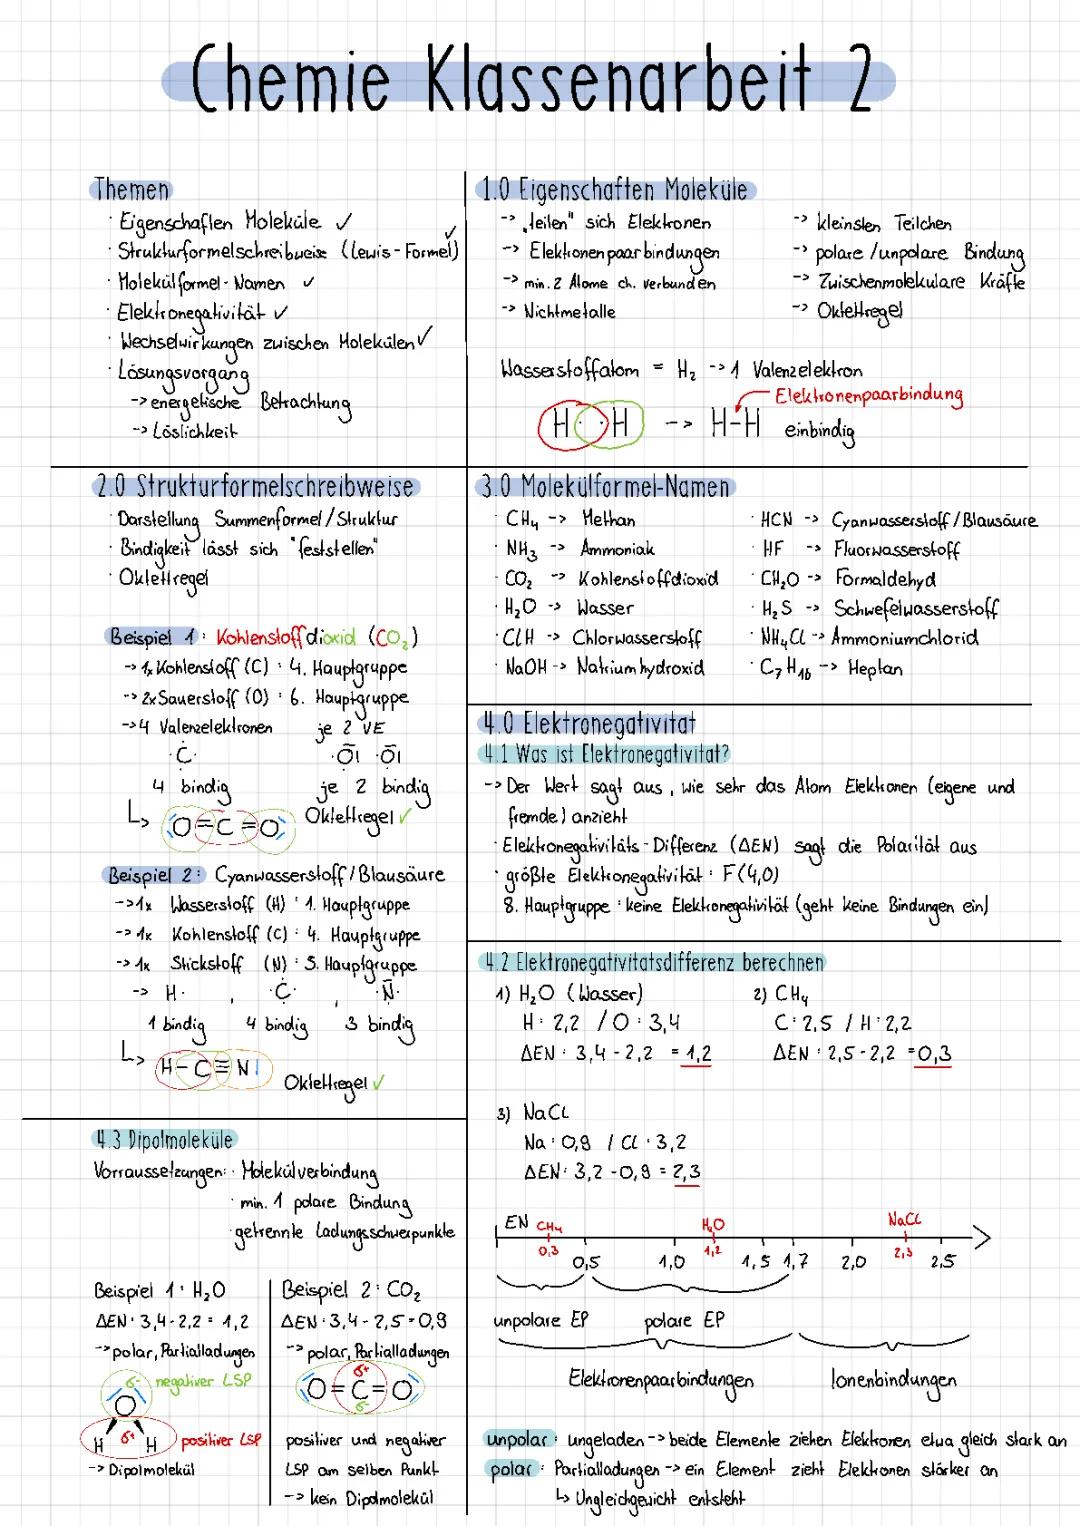 Chemie Klassenarbeit 2
Themen
· Eigenschaften Moleküle ✓
· Strukturformelschreibweise (Lewis-Formel) ✓
· Molekülformel-Namen ✓
· Elektronegativität ✓
· Wechselwirkungen zwischen Molekülen ✓
· Lösungsvorgang
-> energetische Betrachtung
-> Löslichkeit
1.0 Eigenschaften Moleküle
-> „teilen" sich Elektronen
-> Elektronenpaarbindungen
-> min. 2 Atome ch. verbunden
-> Nichtmetalle
-> kleinsten Teilchen
-> polare/unpolare Bindung
-> Zwischenmolekulare Kräfte
-> Oktettregel
Wasserstoffatom = H₂ -> 1 Valenzelektron
Elektronenpaarbindung
H · · H -> H-H einbindig
2.0 Strukturformelschreibweise
· Darstellung Summenformel/Struktur
· Bindigkeit lässt sich "feststellen"
· Oktettregel
Beispiel 1: Kohlenstoffdioxid (CO₂)
-> 1x Kohlenstoff (C) : 4. Hauptgruppe
-> 2x Sauerstoff (O) : 6. Hauptgruppe
-> 4 Valenzelektronen je 2 VE
·C· ·O| ·O|
4 bindig je 2 bindig
O=C=O Oktettregel ✓
Beispiel 2: Cyanwasserstoff/Blausäure
-> 1x Wasserstoff (H) : 1. Hauptgruppe
-> 1x Kohlenstoff (C) : 4. Hauptgruppe
-> 1x Stickstoff (N) : 5. Hauptgruppe
-> H· , ·C· , ·N·
1 bindig 4 bindig 3 bindig
H-C≡N| Oktettregel ✓
3.0 Molekülformel-Namen
· CH₄ -> Methan
· NH₃ -> Ammoniak
· CO₂ -> Kohlenstoffdioxid
· H₂O -> Wasser
· CLH -> Chlorwasserstoff
· NaOH -> Natriumhydroxid
· HCN -> Cyanwasserstoff/Blausäure
· HF -> Fluorwasserstoff
· CH₂O -> Formaldehyd
· H₂S -> Schwefelwasserstoff
· NH₄CL -> Ammoniumchlorid
· C₇H₁₆ -> Heptan
4.0 Elektronegativität
4.1 Was ist Elektronegativität?
-> Der Wert sagt aus, wie sehr das Atom Elektronen (eigene und
fremde) anzieht
· Elektronegativitäts-Differenz (ΔEN) sagt die Polarität aus
· größte Elektronegativität : F(4,0)
8. Hauptgruppe : keine Elektronegativität (geht keine Bindungen ein)
4.2 Elektronegativitätsdifferenz berechnen
1) H₂O (Wasser)
H: 2,2 / O: 3,4
ΔEN: 3,4-2,2 = 1,2
2) CH₄
C: 2,5 / H: 2,2
ΔEN: 2,5-2,2 = 0,3
3) NaCL
Na: 0,9 / CL: 3,2
ΔEN: 3,2-0,9 = 2,3
EN CH₄ H₂O NaCL
0,3 0,5 1,0 1,2 1,5 1,7 2,0 2,3 2,5
unpolare EP polare EP
Elektronenpaarbindungen Ionenbindungen
unpolar: ungeladen -> beide Elemente ziehen Elektronen etwa gleich stark an
polar: Partialladungen -> ein Element zieht Elektronen stärker an
↳ Ungleichgewicht entsteht
4.3 Dipolmoleküle
Vorraussetzungen: · Molekülverbindung
· min. 1 polare Bindung
· getrennte Ladungsschwerpunkte
Beispiel 1: H₂O
ΔEN: 3,4-2,2 = 1,2
-> polar, Partialladungen
δ- negativer LSP
O
H δ+ H positiver LSP
-> Dipolmolekül
Beispiel 2: CO₂
ΔEN: 3,4-2,5=0,9
-> polar, Partialladungen
δ+
O=C=O
δ-
positiver und negativer
LSP am selben Punkt
-> kein Dipolmolekül